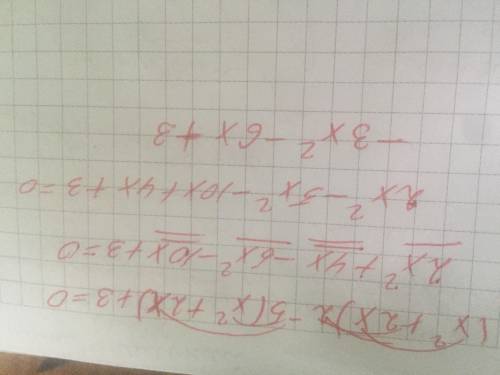 (x² + 2x)2 - 5(x² + 2x) + 3 = 0
2x² + 4x - 5x² - 10x + 3 = 0
2x² - 5x² - 10x + 4x + 3 = 0
-3x² - 6x + 3